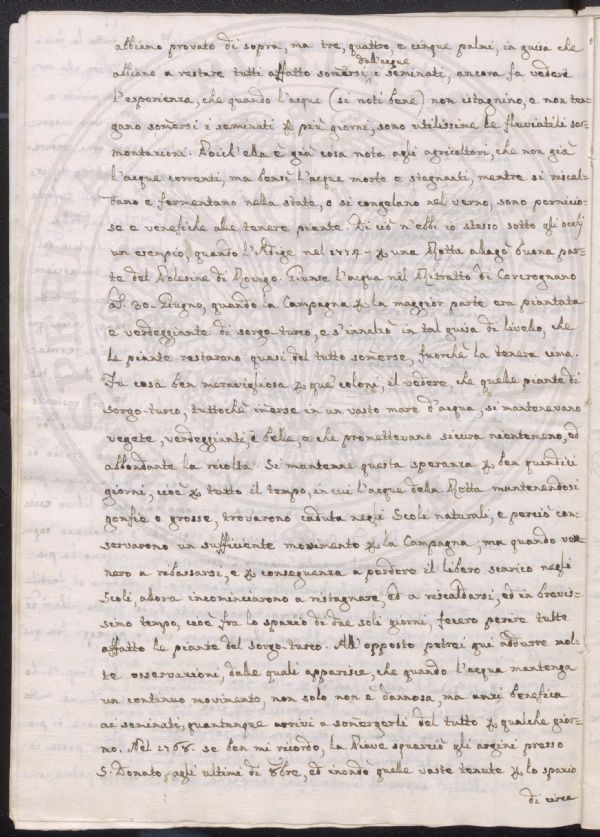 abbiamo provato di sopra, ma tre, quattro, e cinque palmi, in guisa che
dall'acque
abbiano a restare tutti affatto somersi i seminati, ancora fa vedere
l'esperienza, che quando l'acque (si noti bene) non istagnino, e non ten-
gano somersi i seminati p più giorni, sono utilissime le fluviatili sor-
montazioni. Poich'ella è già cosa nota agli agricoltori, che non già
l'acque correnti, ma bensì l'acque morte e stagnanti, mentre si riscal-
dano e fermentano nella state, o si congelano nel verno, sono pernicio-
se e venefiche alle tenere piante. Di ciò n'ebbi io stesso sotto gli occhj
un esempio, quando l'Adige nel 1774 p una Rotta allagò buona par-
te del Polesine di Rovigo. Giunse l'acqua nel Ritratto di
a' 30. Giugno, quando la Campagna p la maggior parte era piantata
e verdeggiante di sorgo-turco, e s'innalzò in tal guisa di livello, che
le piante restarono quasi del tutto somerse, fuorchè la tenera cima.
Fu cosa ben meravigliosa p que' coloni, il vedere, che quelle piante di
sorgo-turco, tuttochè imerse in un vasto mare d'acqua, si mantenevano
vegete, verdeggianti, e belle e che promettevano sicura nientemeno, ed
abbondante la ricolta. Si mantenne questa speranza p ben quindici
giorni, cioè p tutto il tempo, in cui l'acque della Rotta mantenendosi
gonfie e grosse, trovarono caduta negli Scoli naturali, e perciò con-
servarono un sufficiente movimento p la Campagna; ma quando ven-
nero a ribassarsi, e p conseguenza a perdere il libero scarico negli
Scoli, allora incominciarono a ristagnare, ed a riscaldarsi, ed in brevis-
simo tempo, cioè fra lo spazio di due soli giorni, fecero perire tutte
affatto le piante del sorgo-turco. All'opposto potrei qui addurre mol-
te osservazioni, dalle quali apparisce, che quando l'acqua mantenga
un continuo movimento, non solo non è dannosa, ma anzi benefica
ai seminati, quantunque arrivi a somergerli del tutto p qualche gior-
no. Nel 1768. se ben mi ricordo, la Piave squarciò gli argini presso
S. Donato, agli ultimi di 8bre, ed inondò quelle vaste tenute p lo spazio
di circa